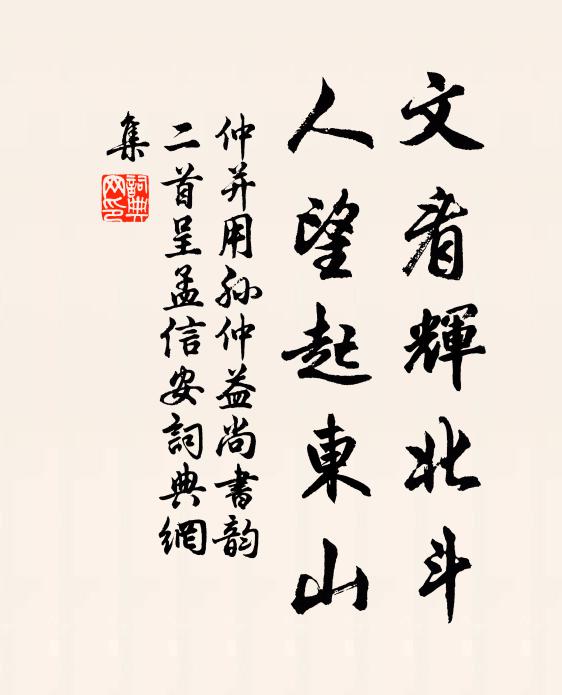 文看輝北斗
人望起東山
仲并用孫仲益尚書韵
二首呈孟信安詞典網
集
詞典
网印